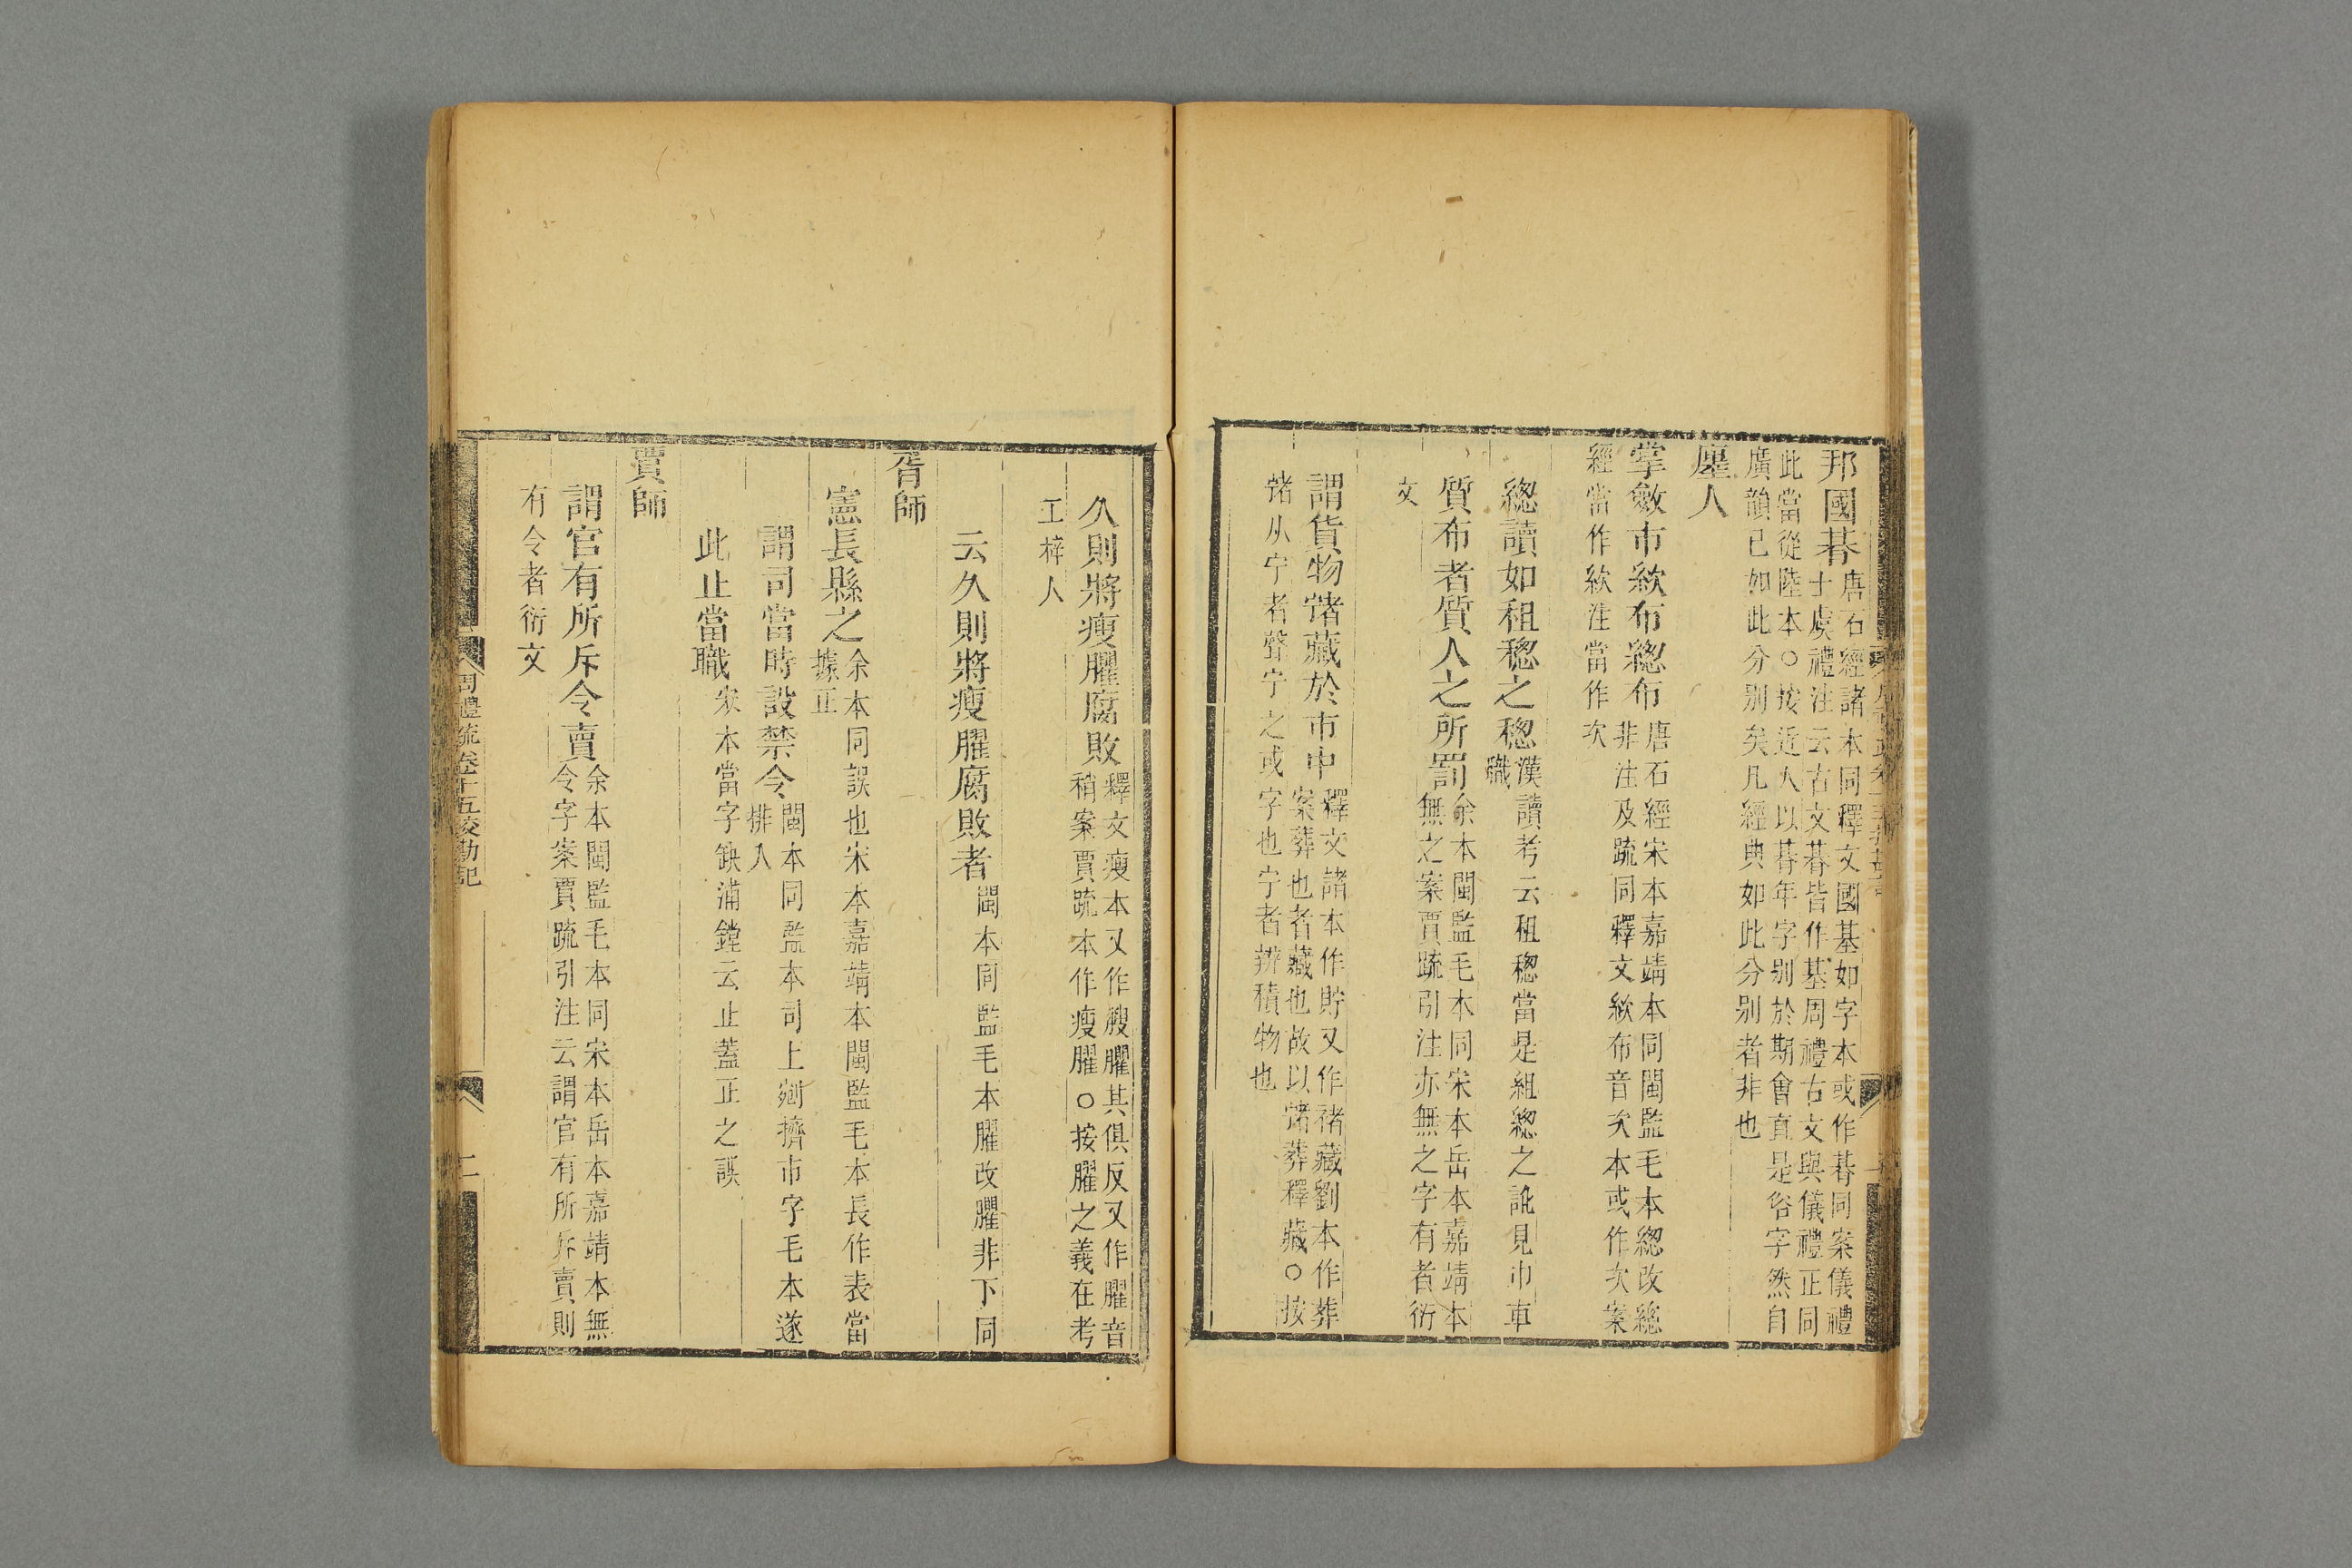 邦國朞唐石經諸本同釋文國基如字本或作朞同案儀禮
士虞禮注云古文朞皆作基周禮古文與儀禮正同
此當從陸本○按近人以朞年字別於期會直是俗字然自
廣韻已如此分别矣凡經典如此分别者非也
廛人
掌斂市絘布緫布唐石經宋本嘉靖本同閩監毛本緫改總
非注及疏同釋文絘布音次本或作次案
經當作絘注當作次
緫讀如租稯之稯漢讀考云租稯當是組緫之訛見巾車
職
質布者質人之所罰余本閩監毛本同宋本岳本嘉靖本
無之案賈疏引注亦無之字有者衍
文
謂貨物𧶠藏於市中釋文諸本作貯又作褚藏劉本作葬
案葬也者藏也故以𧶠葬釋藏○按
𧶠从宁者聲宁之或字也宁者辨積物也
久則將瘦臞腐敗釋文瘦本又作膄臞其俱反又作臞音
稍案賈疏本作瘦臞○按臞之義在考
工梓人
云久則將瘦臞腐敗者閩本同監毛本臞改臞非下同
胥師
憲長縣之余本同誤也宋本嘉靖本閩監毛本長作表當
據正
謂司當時設禁令閩本同監本司上剜擠市字毛本遂
排入
此止當職宋本當字缺浦鏜云止蓋正之誤
賈師
謂官有所斥令賣余本閩監毛本同宋本岳本嘉靖本無
令字案賈疏引注云謂官有所斥賣則
有令者衍文
周禮疏卷十五校勘記
二